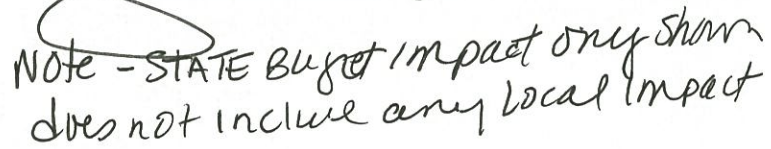 Note - STATE Buget impact only shown
does not include any Local impact